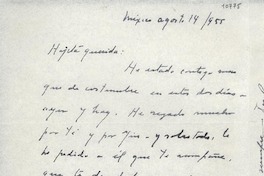 10775
México agosto 19/955
Hijita querida:
He estado contigo mas
que de costumbre en estos dos dias-
ayer y hoy. He rezado mucho
por ti y por Yin - y sobretodo, le
he pedido a él que te acompañe,